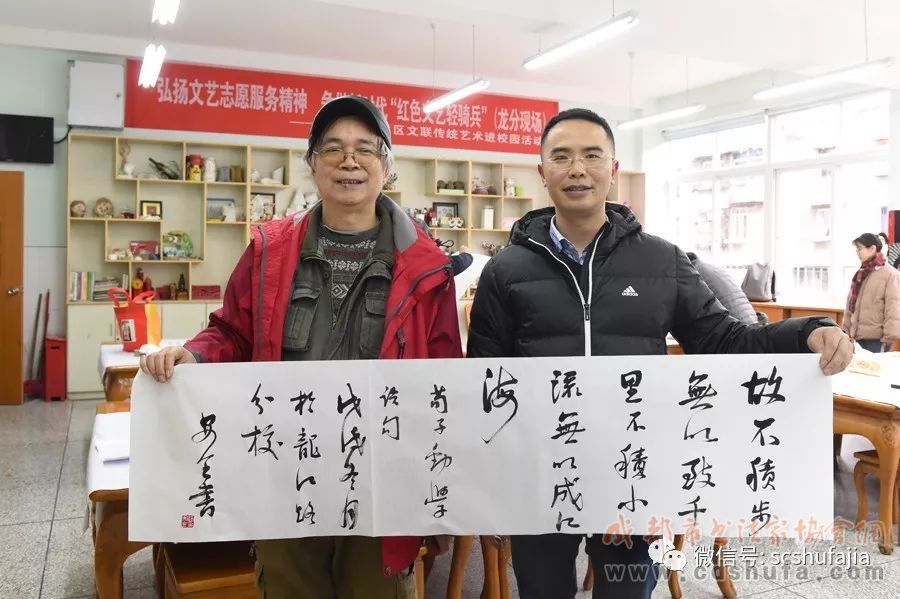 弘扬文艺志愿服务精神 “红色文艺轻骑兵”(龙分现场)
区文联传统艺术进校园活动
故不積步
無以致千
里不積小
流無以成江
海
荀子勸學
語句
戊戌冬月
於龍江路
分校
書
adidas
成都市书法家协会網
微信号: scshufajia
www.cdshufa.com